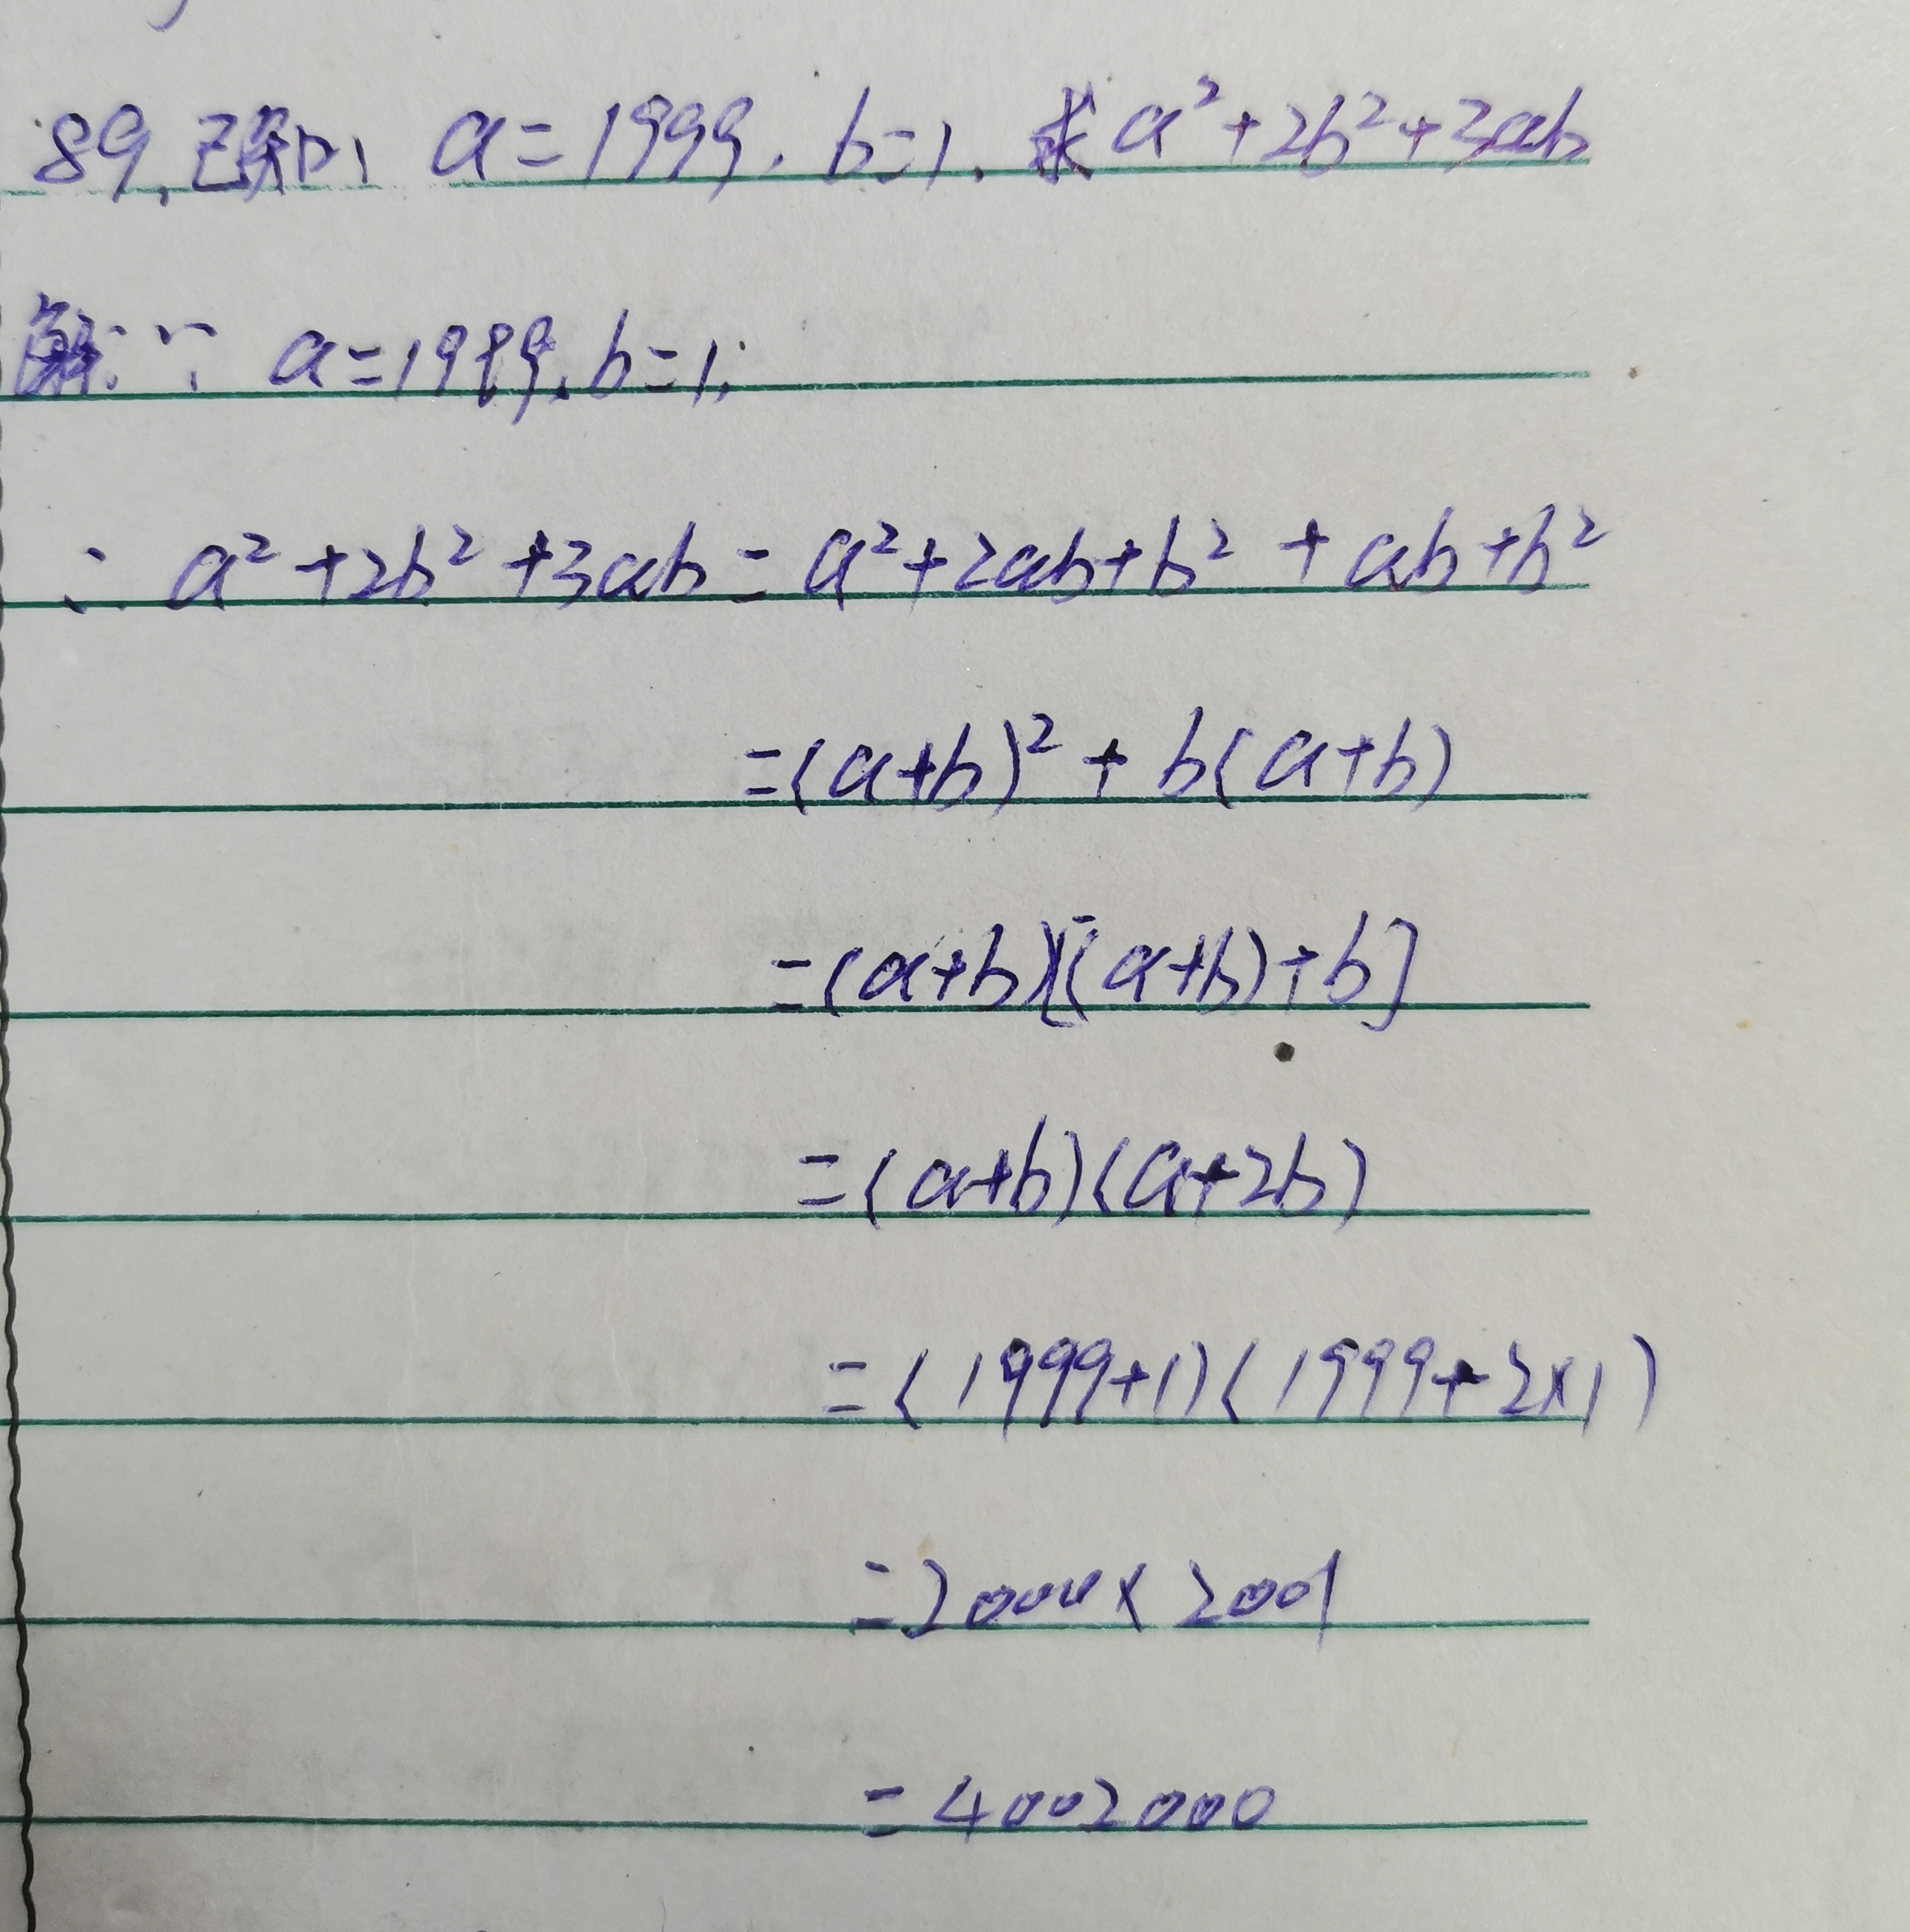 89,已知、a=1999,b=1,求a²+2b²+3ab
解:∵ a=1999,b=1,
∴ a²+2b²+3ab=a²+2ab+b²+ab+b²
=(a+b)²+b(a+b)
=(a+b)[(a+b)+b]
=(a+b)(a+2b)
=(1999+1)(1999+2×1)
=2000×2001
=4002000